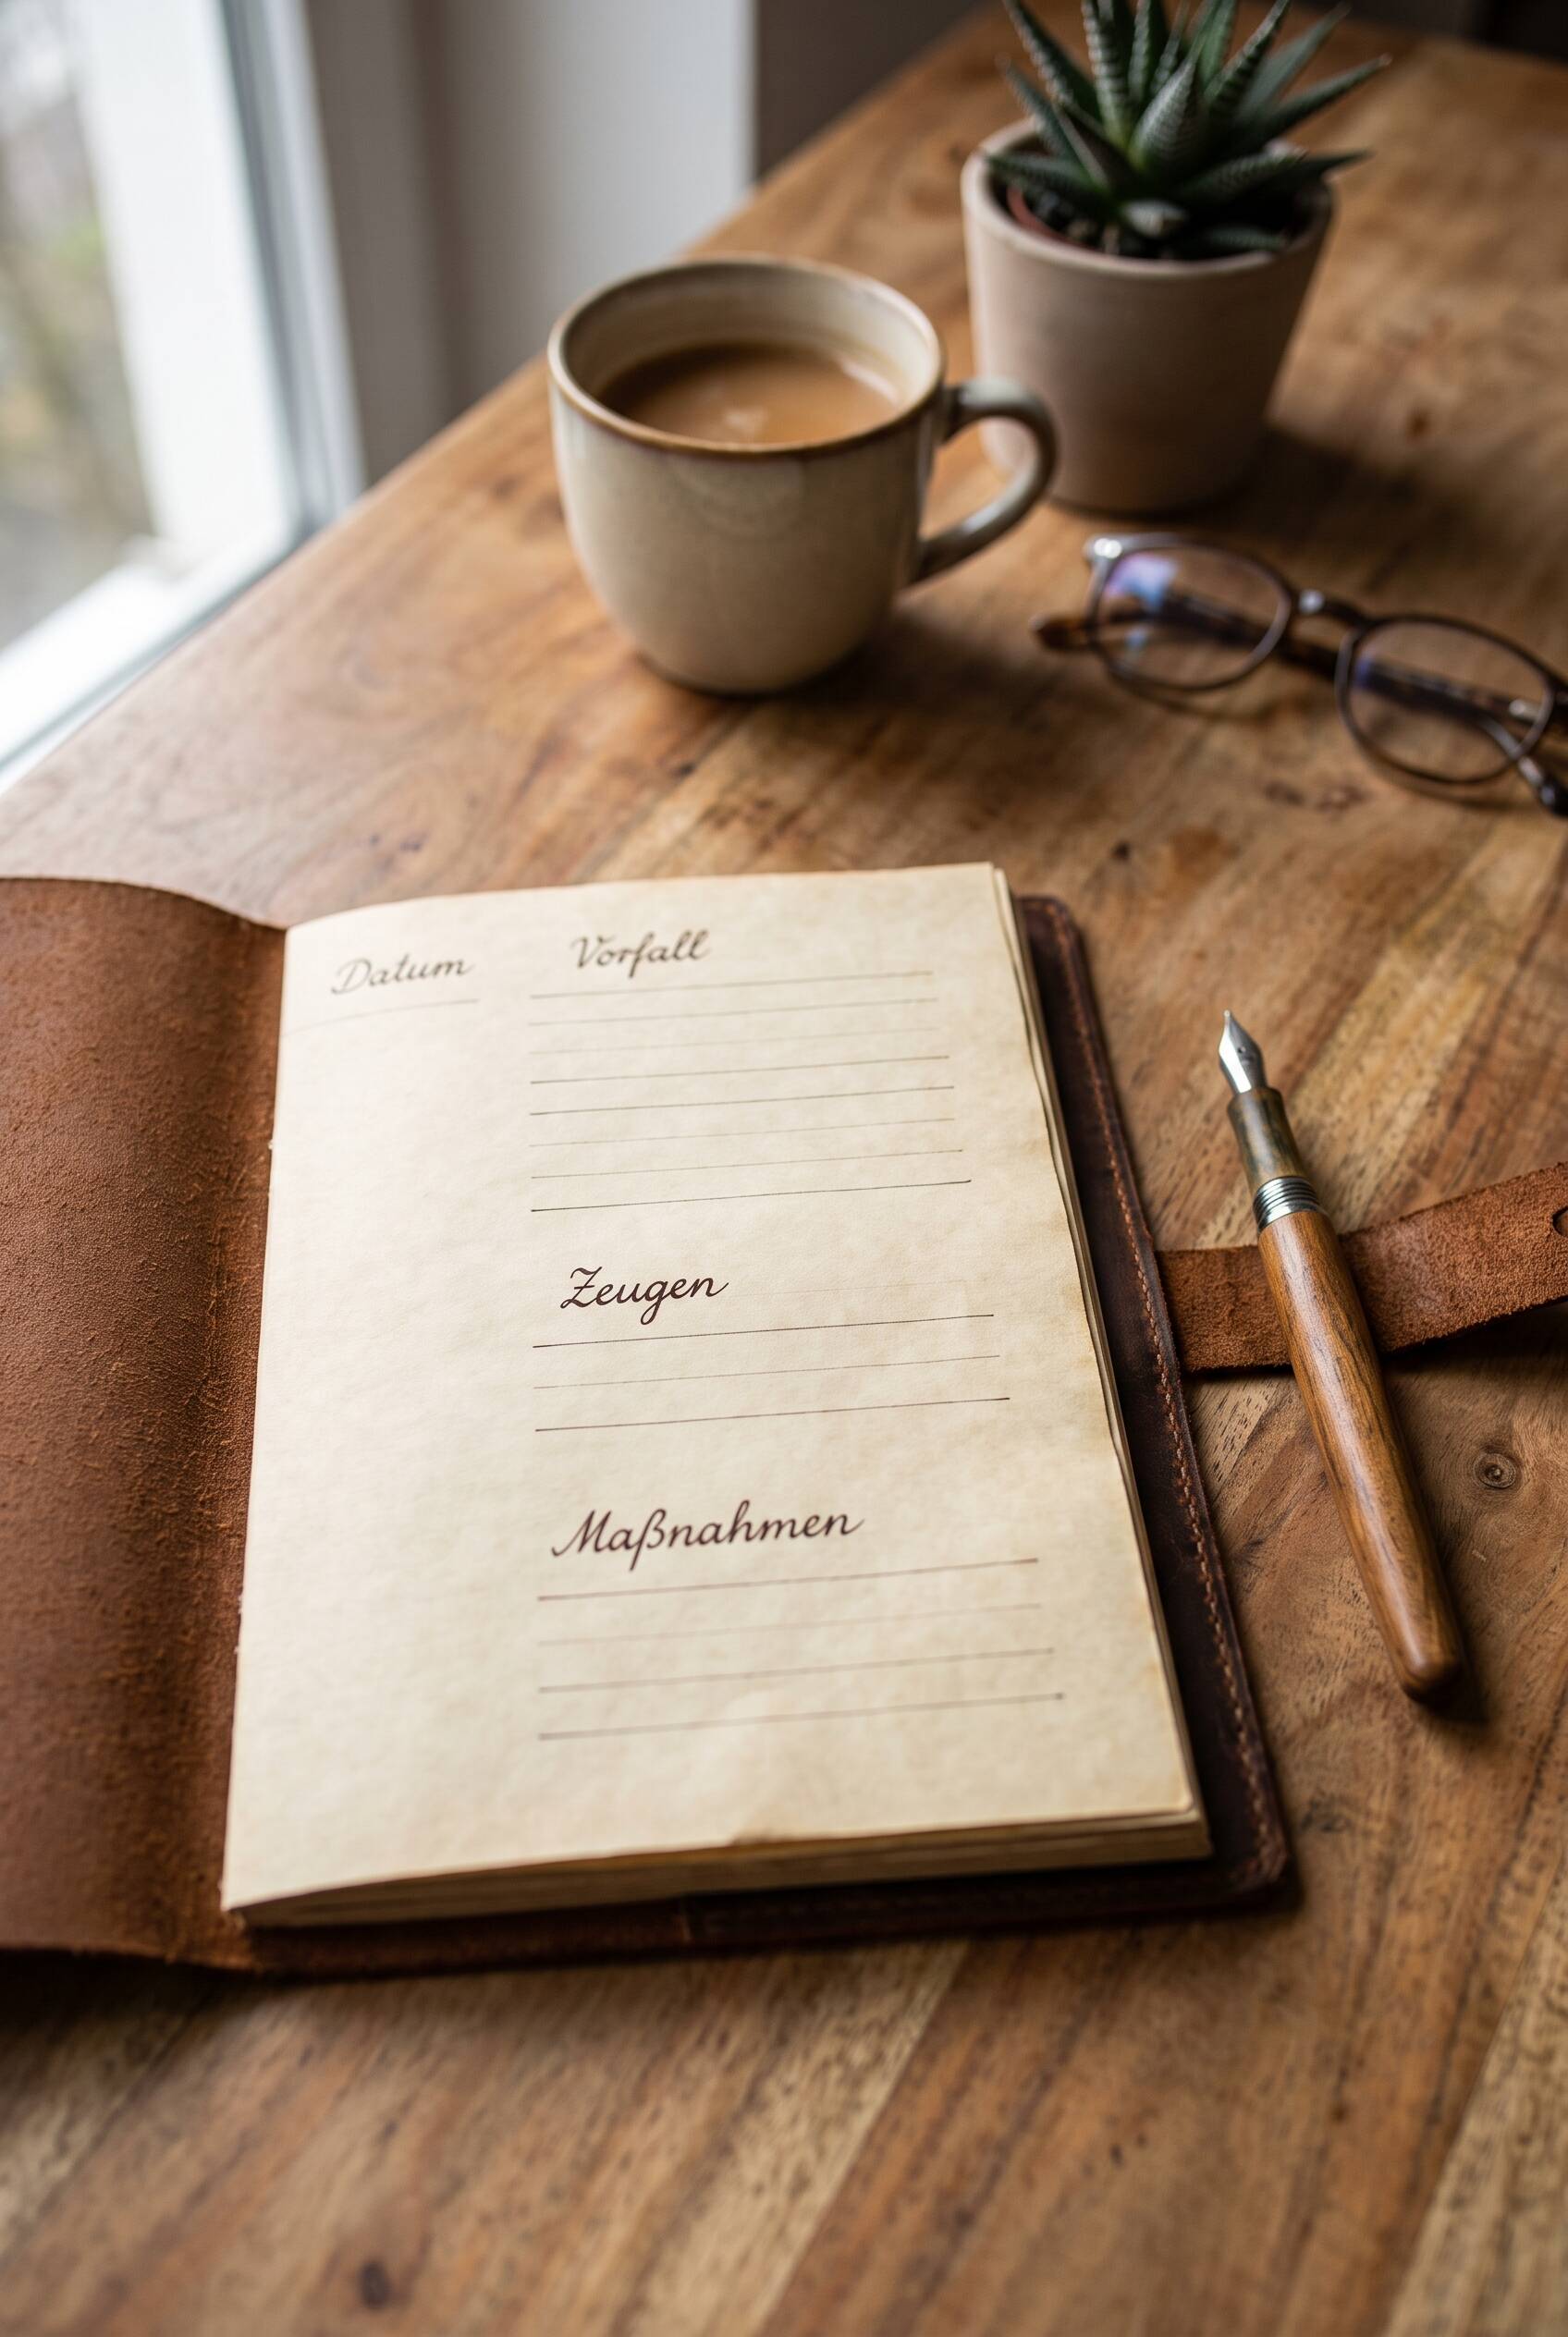 Datum Vorfall
Zeugen
Maßnahmen